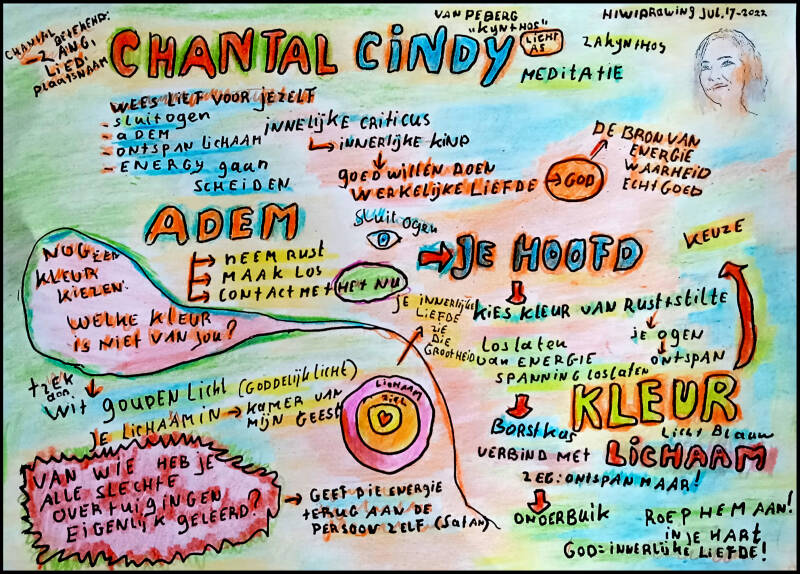 CHANTAL
BETEKEND:
ZANG,
LIED,
PLAATSNAAM
CHANTAL CINDY
VAN DE BERG
"KYNTHOS"
LICHT
AS
ZAKYNTHOS
MEDITATIE
HIWIDRAWING JUL.17-2022
WEES LIEF VOOR JEZELF
- sluit ogen
- ADEM
- ONTSPAN LICHAAM
- ENERGY gaan
SCHEIDEN
INNELIJKE CRITICUS
INNERLIJKE KIND
GOED WILLEN DOEN
WERKELIJKE LIEFDE
GOD
DE BRON VAN
ENERGIE
WAARHEID
ECHT GOED
ADEM
NEEM RUST
MAAK LOS
CONTACT MET HET NU
Sluit ogen
JE HOOFD
KEUZE
KIES KLEUR VAN RUST+STILTE
je OGEN
ONTSPAN
LOSLATEN
van ENERGIE
SPANNING LOSLATEN
NOG EEN
KLEUR
KIEZEN:
WELKE KLEUR
IS NIET VAN JOU?
JE INNERLIJKE
LIEFDE
ZIE
DIE
GROOTHEID
TREK
aan.
WIT GOUDEN LICHT (GODDELIJK LICHT)
JE LICHAAM IN → KAMER VAN
MIJN GEEST
LICHAAM
ZIEL
KLEUR
Licht Blauw
BORSTKAS
VERBIND MET LICHAAM
ZEG: ONTSPAN MAAR!
ONDERBUIK
VAN WIE HEB JE
ALLE SLECHTE
OVERTUIGINGEN
EIGENLIJK GELEERD?
GEEF DIE ENERGIE
TERUG AAN DE
PERSOON ZELF (SATAN)
ROEP HEM AAN!
IN JE HART
GOD=INNERLIJKE LIEFDE!